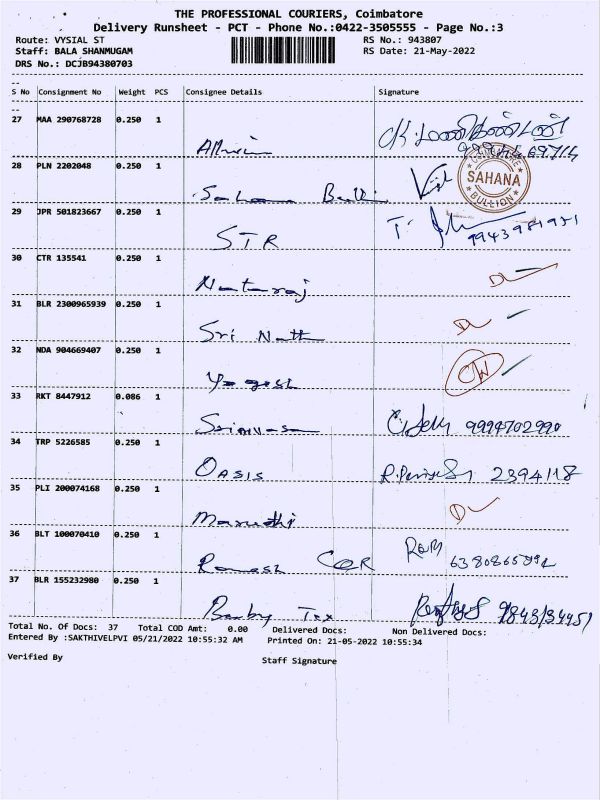 THE PROFESSIONAL COURIERS, Coimbatore
Delivery Runsheet - PCT - Phone No.:0422-3505555 - Page No.:3
Route: VYSIAL ST RS No.: 943807
Staff: BALA SHANMUGAM RS Date: 21-May-2022
DRS No.: DCJB94380703
S No Consignment No Weight PCS Consignee Details Signature
27 MAA 290768728 0.250 1
28 PLN 2202048 0.250 1
COIMBATORE
SAHANA
BULLION
29 JPR 501823667 0.250 1
STR 9943981951
30 CTR 135541 0.250 1
Nataraj DL
31 BLR 2300965939 0.250 1
Sri Nath DL
32 NDA 904669407 0.250 1
Yogesh
33 RKT 8447912 0.086 1
9994702990
34 TRP 5226585 0.250 1
OASIS 2394118
35 PLI 200074168 0.250 1
Maruthi DL
36 BLT 100070410 0.250 1
Ramesh
37 BLR 155232980 0.250 1
Tex
Total No. Of Docs: 37 Total COD Amt: 0.00 Delivered Docs: Non Delivered Docs:
Entered By :SAKTHIVELPVI 05/21/2022 10:55:32 AM Printed On: 21-05-2022 10:55:34
Verified By Staff Signature